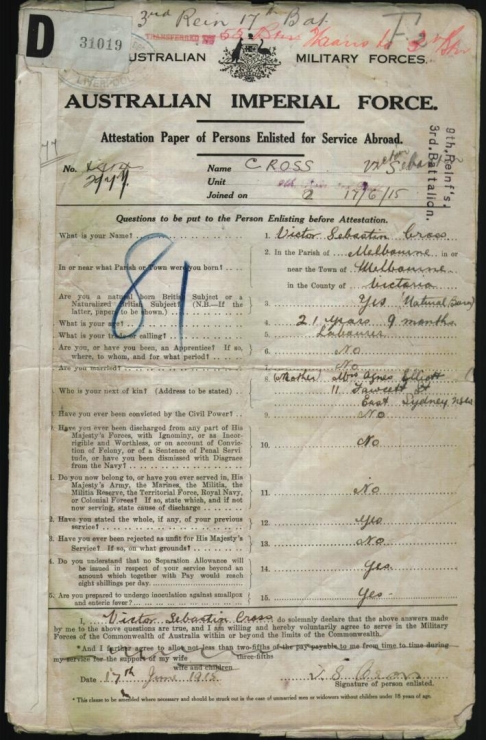 3rd Rein 17th Bat.
D
31019
AUSTRALIAN MILITARY FORCES.
AUSTRALIAN IMPERIAL FORCE.
Attestation Paper of Persons Enlisted for Service Abroad.
8th Reinf's.
3rd Battalion.
No. Name CROSS
Unit
Joined on 17/6/15
Questions to be put to the Person Enlisting before Attestation.
81
What is your Name? 1. Victor Sebastin Cross
In or near what Parish or Town were you born? 2. In the Parish of Melbourne in or
near the Town of Melbourne
in the County of Victoria
Are you a natural born British Subject or a
Naturalized British Subject? (N.B.—If the 3. Yes (Natural Born)
latter, papers to be shown.)
What is your 4. 21 years 9 months
What is your trade or calling? 5. Labourer
Are you, or have you been, an Apprentice? If so, 6. No
where, to whom, and for what period?
Are you married? 7. No
Who is your next of kin? (Address to be stated) 8. (Mother) Mrs Agnes Elliott
11 Fawcett St
East Sydney NSW
Have you ever been convicted by the Civil Power? 9. No
Have you ever been discharged from any part of His
Majesty's Forces, with Ignominy, or as Incor-
rigible and Worthless, or on account of Convic- 10. No
tion of Felony, or of a Sentence of Penal Servi-
tude, or have you been dismissed with Disgrace
from the Navy?
Do you now belong to, or have you ever served in, His
Majesty's Army, the Marines, the Militia, the
Militia Reserve, the Territorial Force, Royal Navy,
or Colonial Forces? If so, state which, and if not 11. No
now serving, state cause of discharge
Have you stated the whole, if any, of your previous 12. Yes
service?
Have you ever been rejected as unfit for His Majesty's 13. No
Service? If so, on what grounds?
Do you understand that no Separation Allowance will
be issued in respect of your service beyond an 14. Yes
amount which together with Pay would reach
eight shillings per day.
Are you prepared to undergo inoculation against smallpox 15. Yes
and enteric fever?
I, Victor Sebastin Cross do solemnly declare that the above answers made
by me to the above questions are true, and I am willing and hereby voluntarily agree to serve in the Military
Forces of the Commonwealth of Australia within or beyond the limits of the Commonwealth.
*And I further agree to allot not less than two-fifths of the pay payable to me from time to time during
three-fifths
my service for the support of my wife
wife and children
Date 17th June 1915
Signature of person enlisted.
* This clause to be amended where necessary and should be struck out in the case of unmarried men or widowers without children under 18 years of age.